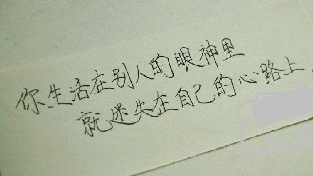 你生活在别人的眼神里
就迷失在自己的心路上